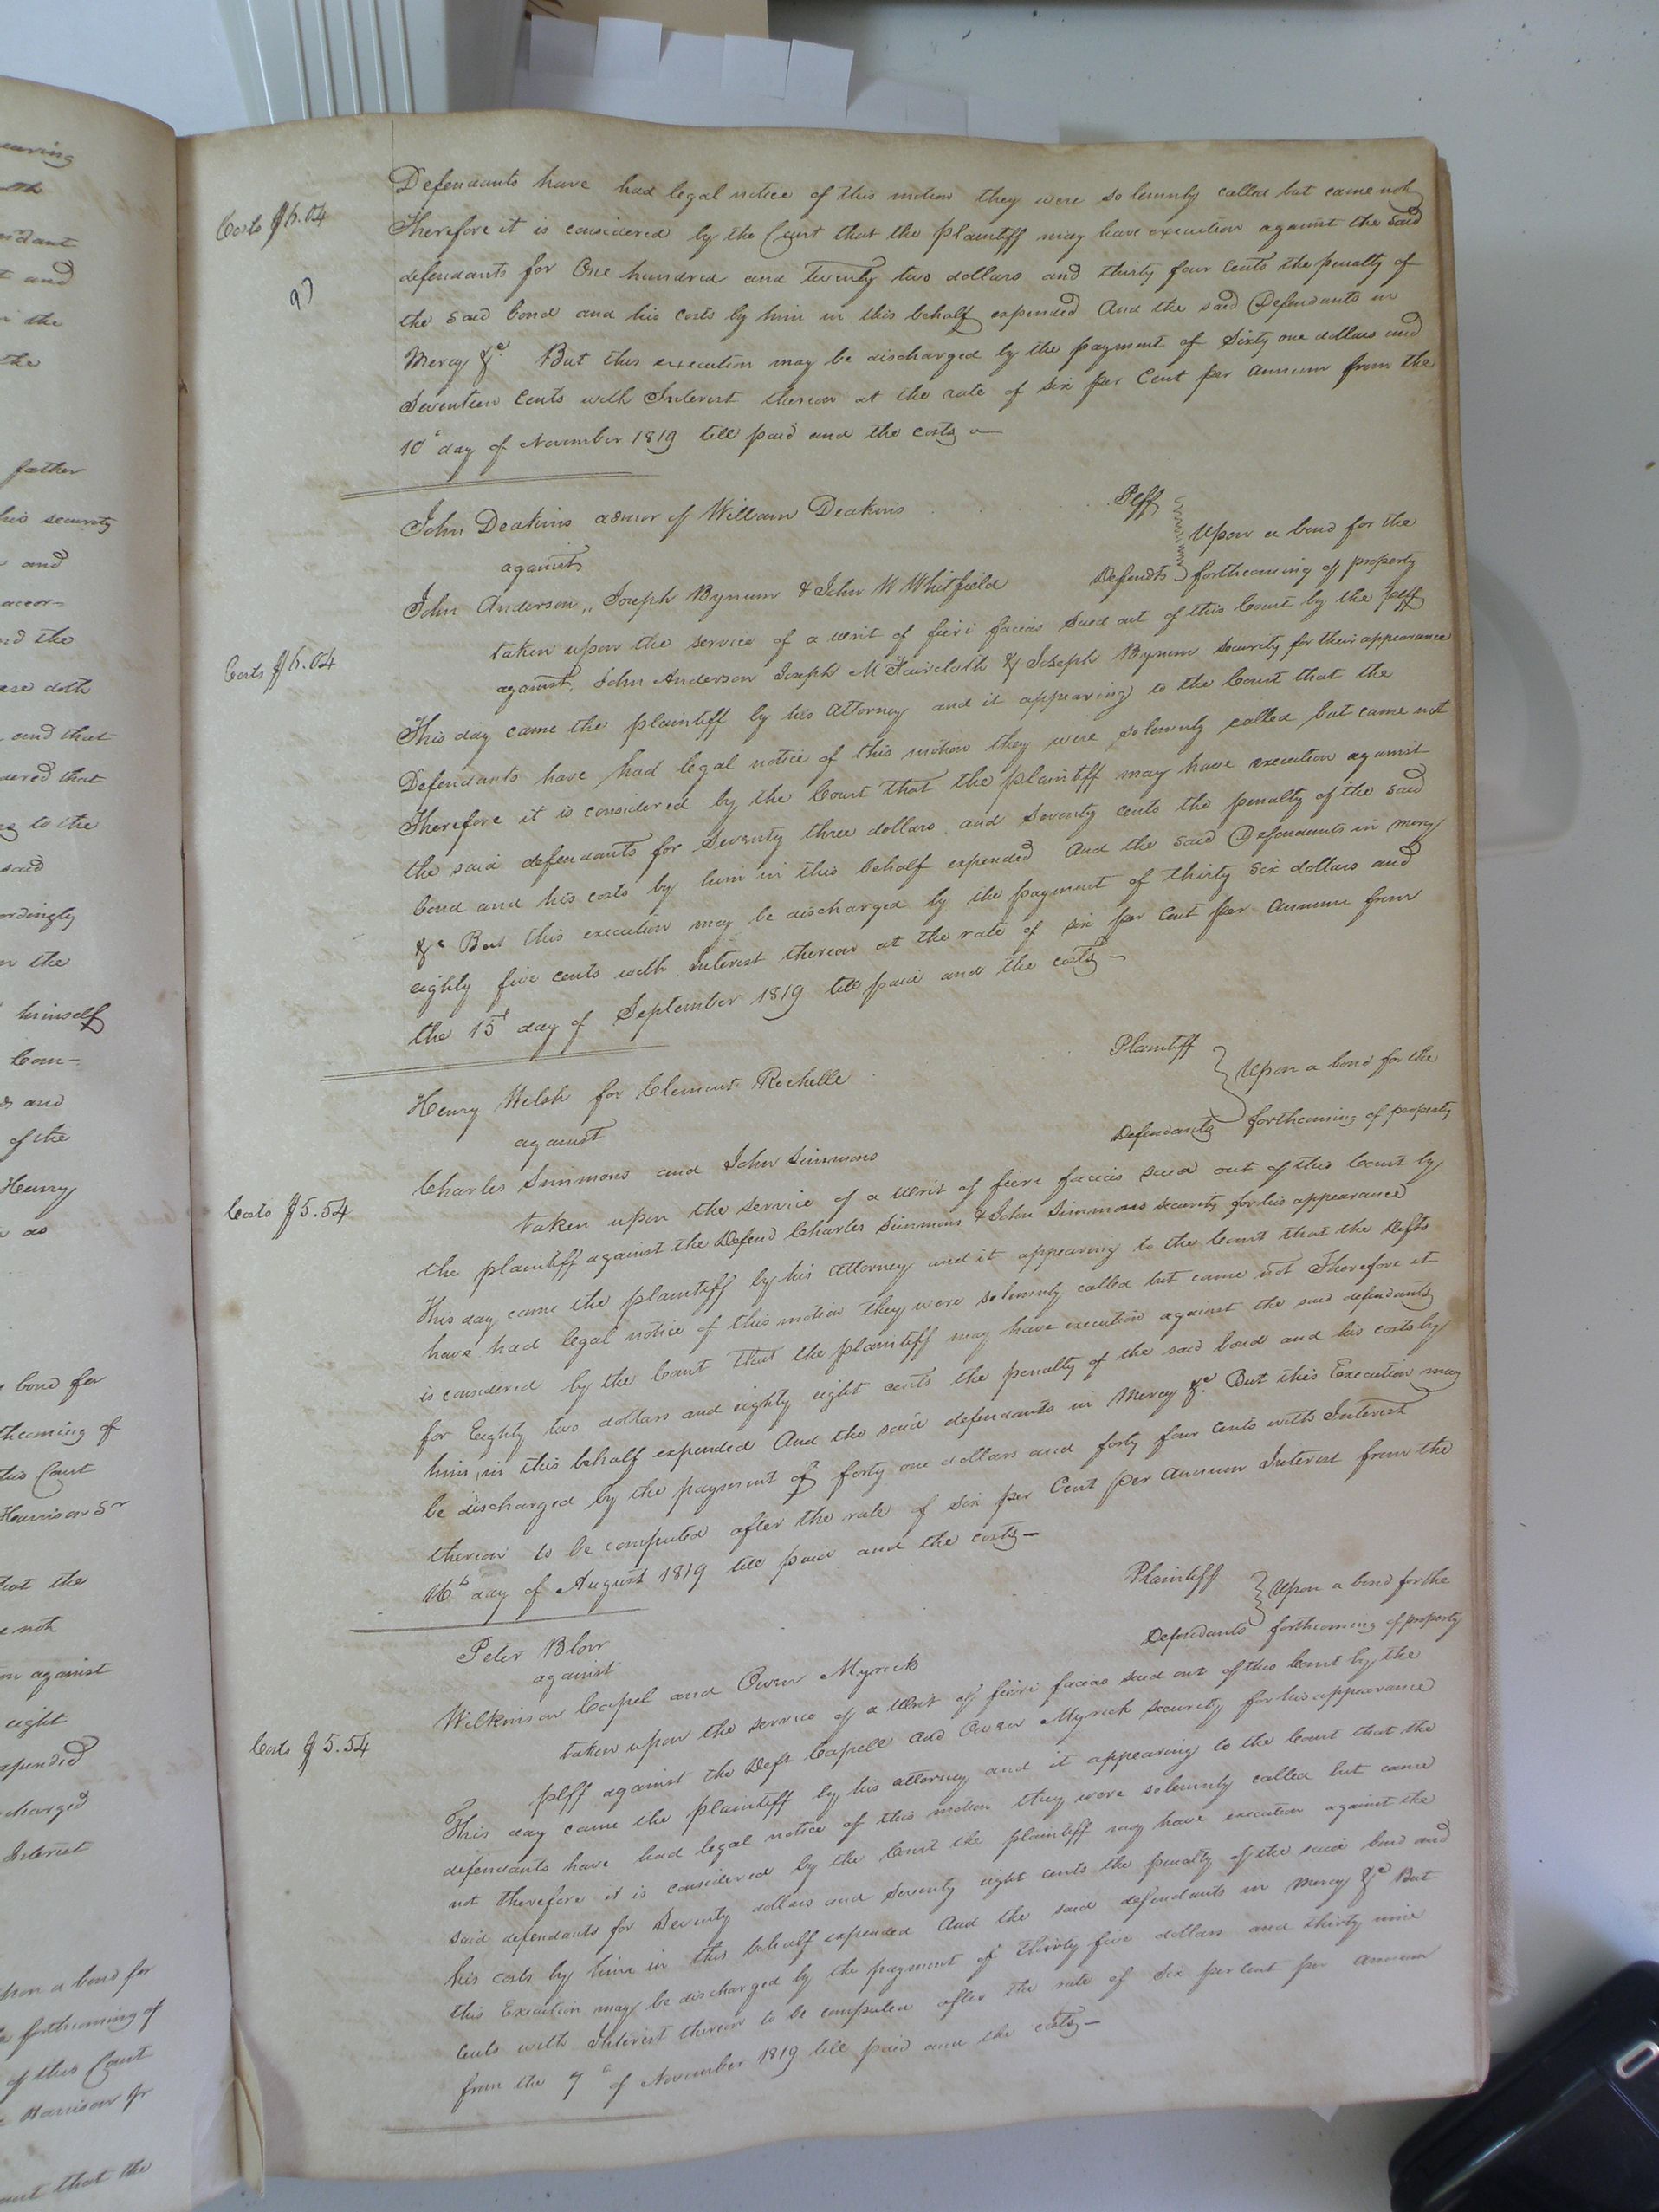 earing
th
endant
t and
in the
the
father
his security
and
accor-
nd the
ase doth
and that
dered that
ng to the
said
ordingly
in the
himself
Com-
ds and
of the
Henry
as
bond for
thcoming of
this Court
Harrison Sr
that the
e not
on against
eight
expended
charged
Interest
upon a bond for
forthcoming of
of this Court
Harrison Jr
ourt that the
Defendants have had legal notice of this motion they were solemnly called but came not
Costs $6.04
Therefore it is considered by the Court that the plaintiff may have execution against the said
defendants for One hundred and twenty two dollars and thirty four Cents the penalty of
the said bond and his costs by him in this behalf expended And the said Defendants in
Mercy &c. But this execution may be discharged by the payment of Sixty one dollars and
Seventeen Cents with Interest thereon at the rate of six per Cent per annum from the
10th day of November 1819 till paid and the costs
John Deakins admor of William Deakins Plff
against
Upon a bond for the
John Anderson, Joseph Bynum & John W Whitfield Defendts forthcoming of property
taken upon the service of a writ of fieri facias sued out of this Court by the plff
Costs $6.04
against John Anderson Joseph M Faircloth & Joseph Bynum security for their appearance
This day came the plaintiff by his attorney and it appearing to the Court that the
Defendants have had legal notice of this motion they were solemnly called but came not
Therefore it is considered by the Court that the plaintiff may have execution against
the said defendants for Seventy three dollars and Seventy cents the penalty of the said
bond and his costs by him in this behalf expended And the said Defendants in mercy
&c But this execution may be discharged by the payment of thirty six dollars and
eighty five cents with Interest thereon at the rate of six per Cent per annum from
the 15t day of September 1819 till paid and the costs —
Henry Welsh for Clement Rochelle Plaintiff
against
Upon a bond for the
Charles Simmons and John Simmons Defendants forthcoming of property
Costs $5.54
taken upon the service of a writ of fieri facias sued out of this Court by
the plaintiff against the Defend Charles Simmons & John Simmons security for his appearance
This day came the plaintiff by his attorney and it appearing to the Court that the Defts
have had legal notice of this motion they were solemnly called but came not Therefore it
is considered by the Court that the plaintiff may have execution against the said defendants
for Eighty two dollars and eighty eight cents the penalty of the said bond and his costs by
him in this behalf expended And the said defendants in Mercy &c. But this Execution may
be discharged by the payment of forty one dollars and forty four Cents with Interest
thereon to be computed after the rate of six per Cent per annum Interest from the
16th day of August 1819 till paid and the costs —
Peter Blow Plaintiff
against
Upon a bond for the
Wilkinson Capel and Owen Myrick Defendants forthcoming of property
Costs $5.54
taken upon the service of a writ of fieri facias sued out of this Court by the
plff against the Deft Capell and Owen Myrick security for his appearance
This day came the plaintiff by his attorney and it appearing to the Court that the
defendants have had legal notice of this motion they were solemnly called but came
not therefore it is considered by the Court the plaintiff may have execution against the
said defendants for Seventy dollars and Seventy eight cents the penalty of the said bond and
his costs by him in this behalf expended And the said defendants in Mercy &c But
this Execution may be discharged by the payment of thirty five dollars and thirty nine
Cents with Interest thereon to be computed after the rate of six per cent per annum
from the 7th of November 1819 till paid and the costs —